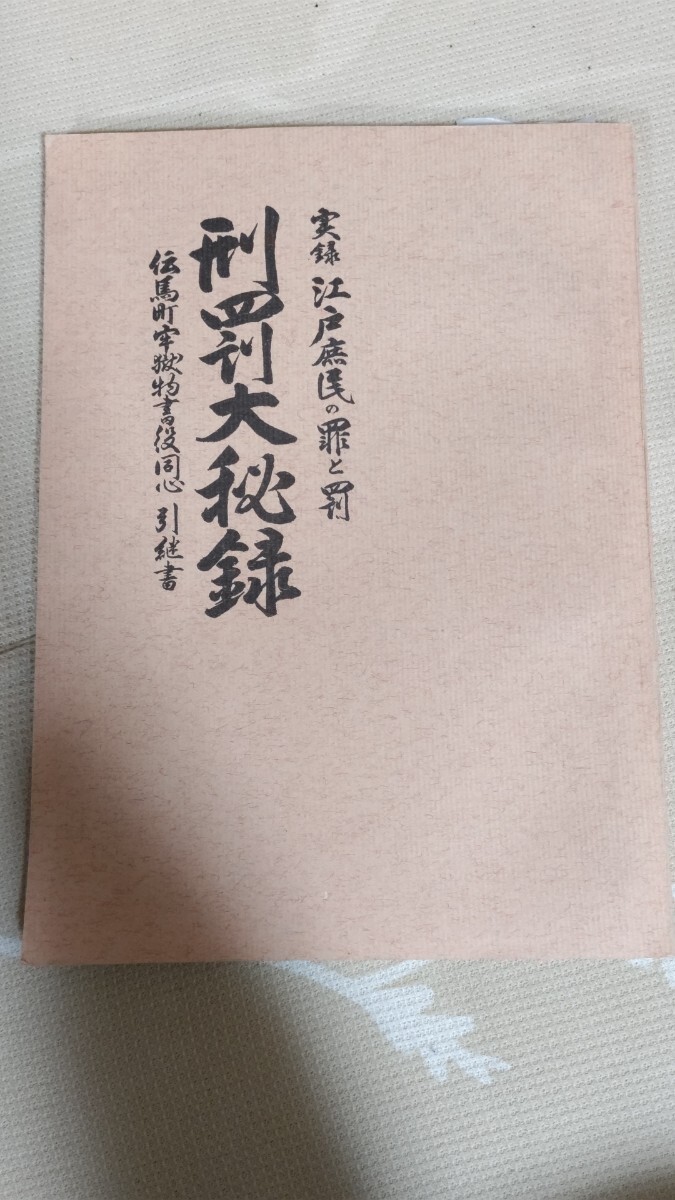 実録 江戸庶民の罪と罰
刑罰大秘録
伝馬町牢獄物書役同心 引継書